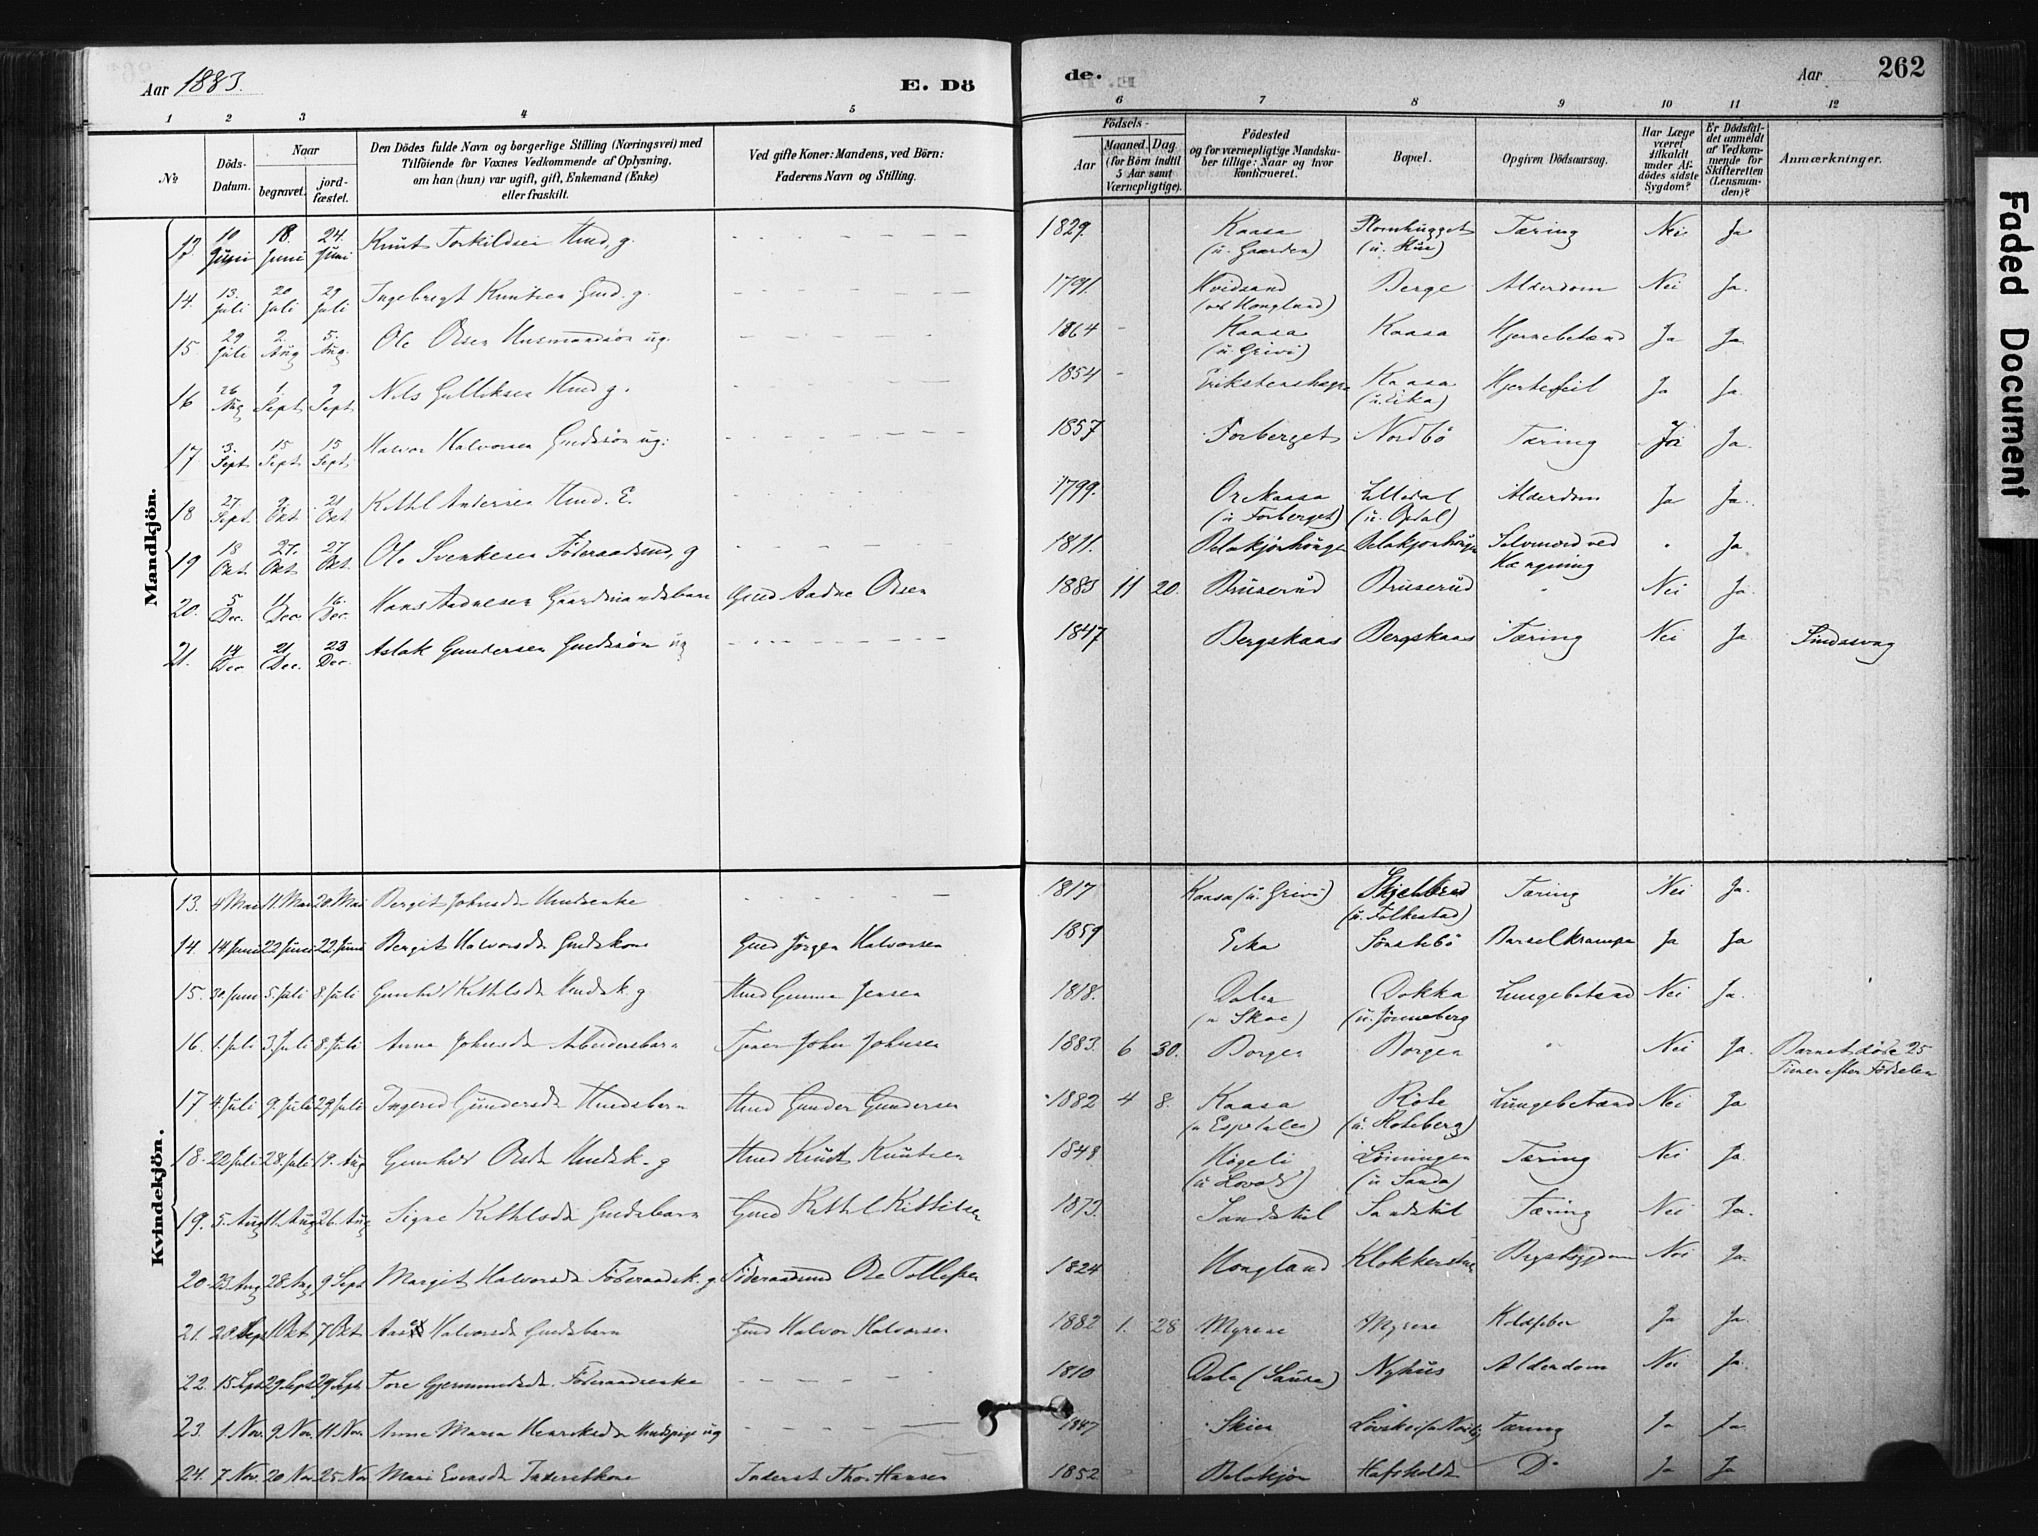 Aar 1883.
E. Dö
de.
Aar
262
1 2 3 4 5 6 7 8 9 10 11 12
No
Döds-Datum.
Naar
begravet.
jord-fæstet.
Den Dödes fulde Navn og borgerlige Stilling (Næringsvei) med
Tilföiende for Voxnes Vedkommende af Oplysning,
om han (hun) var ugift, gift, Enkemand (Enke)
eller fraskilt.
Ved gifte Koner: Mandens, ved Börn:
Faderens Navn og Stilling.
Födsels-
Aar
Maaned. Dag
(for Börn indtil
5 Aar samt
Værnepligtige).
Födested
og for værnepligtige Mandska-
ber tillige: Naar og hvor
konfirmeret.
Bopæl.
Opgiven Dödsaarsag.
Har Læge
været
tilkaldt
under Af-
dödes sidste
Sygdom?
Er Dödsfal-
det anmeldt
af Vedkom-
mende for
Skifteretten
(Lensman-
den)?
Anmærkninger.
Mandkjön.
13. 10 Juni 18. Juni 24. Juni Knut Torkildsen Hmd, g. 1829. Kaasa (u. Gaarden) (u. Hus) Tæring Nei Ja
14. 13. Juli 20 Juli 29 Juli Ingebregt Knutsen Gmd. g. 1791. Hvidsand Berge Alderdom Nei Ja.
15. 29 Juli 2. Aug 5. Aug. Ole Olsen Husmandssøn ug. 1864 Kaasa (u. Grivi) Kaasa Hjernebetænd Ja Ja
16 26 Aug 1. Sept 9 Sept Nils Gulliksen Hmd g. 1854 Kaasa (u. Eika) Hjertefeil Ja Ja.
17 3. Sept 15 Sept 15 Sept Halvor Halvorsen Gmdssøn ug. 1857 Forberget Nordbö Tæring Ja Ja.
18 27. Sept. 9. Okt 21 Okt Kittil Andersen Hmd. E. 1799. Orekaasa (u Forberget) Lilledal (u. Opdal) Alderdom Ja Ja.
19 18 Okt 27. Okt 27 Okt. Ole Svenkesen Föderaadsmd, g 1811. Selvmord ved Hængning Ja.
20. 5 Dec. 11 Dec. 16. Dec. Hans Aadnesen Gaardmandsbarn Gmd Aadne Olsen 1883 11 20. Bruserud Bruserud Nei Ja.
21. 14 Dec. 21 Dec. 23 Dec. Aslak Gundersen Gmdssøn ug 1847 Bergskaas Bergskaas Tæring Nei Ja Sindssvag
Kvindekjön.
13. 4 Mai 11. Mai 20. Mai Bergit Johnsdr Hmdsenke 1817 Kaasa (u. Grivi) (u. Folkestad) Tæring Nei Ja.
14. 14 Juni 22 Juni 22. Juni Bergit Halvorsdr Gmdskone Gmd Jörgen Halvorsen 1859 Eika Sönstebö Barselkrampe Ja Ja
15. 30. Juni 5. Juli 8 Juli Gunhild Kittilsdr Hmdsk. g. Hmd Gunnar Jensen 1818. Dalen (u Skoe) Dokka (u. Jönneberg Lungebetænd Nei Ja.
16. 1. Juli 3. Juli 8. Juli Anne Johnsdr Arbeidersbarn Tjener John Johnsen 1883. 6 30. Borgen Borgen Nei Ja. Barnet døde 25 Timer efter Födselen
17 4. Juli 9. Juli 29 Juli Ingerid Gundersdr Hmdsbarn Hmd Gunder Gundersen 1882 4 8. Kaasa (u Espedalen) Rote (u. Roteberg) Lungebetænd Nei Ja
18. 22 Juli 28. Juli 19. Aug Gunhild Olsdr Hmdsk. g Hmd Knudt Knutsen 1848 Högeli (u Lovald) Lönningen (u Sanda) Tæring Nei Ja.
19. 5. Aug 11. Aug 26. Aug Signe Kittilsdr Gmdsbarn Gmd Kittil Kittilsen 1873. Sandstul Sandstul Tæring Nei Ja.
20. 23. Aug 28 Aug 9 Sept Margit Halvorsdr Föderaadsk. g. Föderaadsmd Ole Tollefsen 1824 Hougland Brystsygdom Nei Ja.
21. 20. Sept 1 Okt 7 Okt Halvorsdr Gmdsbarn Gmd Halvor Halvorsen 1882 1. 28 Myrene Myrene Koldfeber Ja Ja.
22. 15 Sept 29 Sept 29 Sept. Tore Gjermundsdr. Föderaadsenke 1810 Dale (Saura) Nyhus Alderdom Nei Ja.
23. 1. Nov. 9 Nov. 11. Nov. Anne Maria Henriksdr ug 1847 Skien Tæring Ja Ja.
24. 7 Nov. 20 Nov. 25 Nov. Mari Inderstkone Inderst Thor Hansen 1852 Do Ja Ja
Faded Document